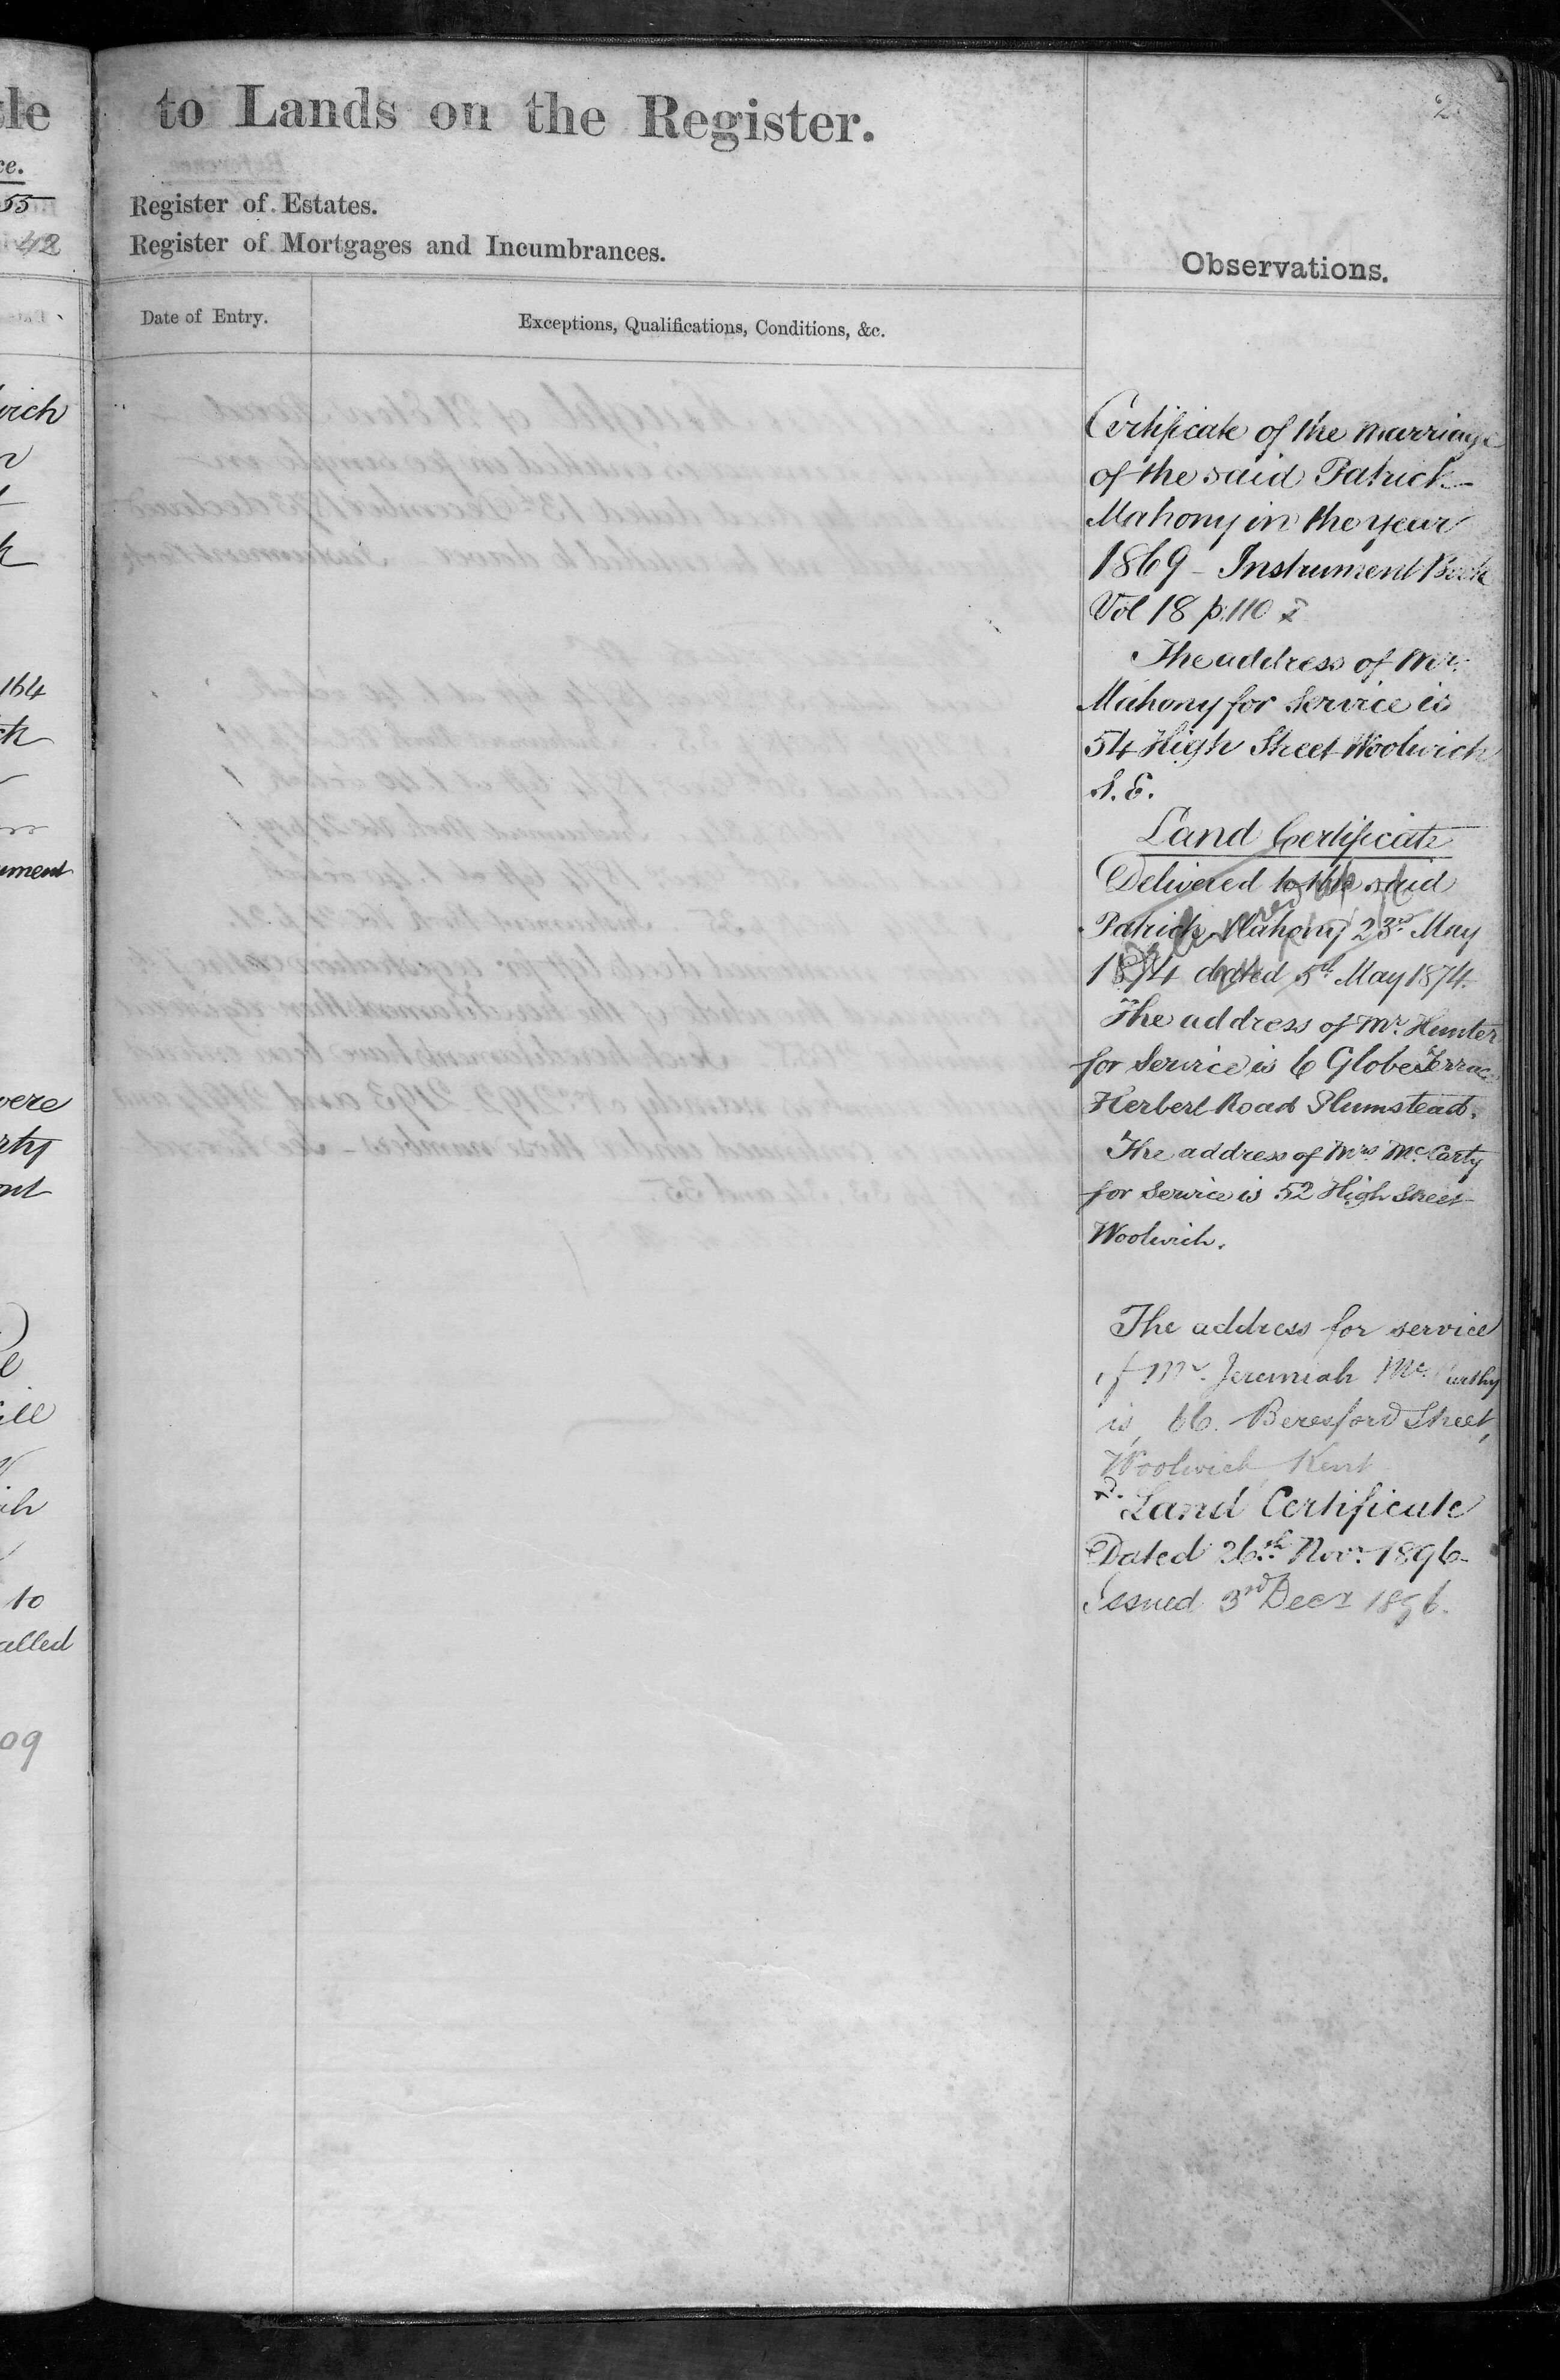 tle
to Lands on the Register.
2
ce.
55
Register of Estates.
42
Register of Mortgages and Incumbrances.
Observations.
Date of Entry.
Exceptions, Qualifications, Conditions, &c.
Certificate of the Marriage
of the said Patrick
Mahony in the year
1869 - Instrument Book
Vol 18 p. 110
The address of Mr.
Mahony for Service is
54 High Street Woolwich
S. E.
Land Certificate
Delivered to the said
Patrick Mahony 23rd May
1874 dated 5th May 1874.
The address of Mr. Hunter
for Service is 6 Globe Terrace
Herbert Road Plumstead.
The address of Mrs McCarty
for Service is 52 High Street
Woolwich.
The address for service
of Mr. Jeremiah McCarthy
is, 66. Beresford Street,
Woolwich Kent
Land Certificate
Dated 26th Novr. 1896
Issued 3rd Decr 1896.
wich
164
ument
were
rty
ont
ill
ich
to
alled
09